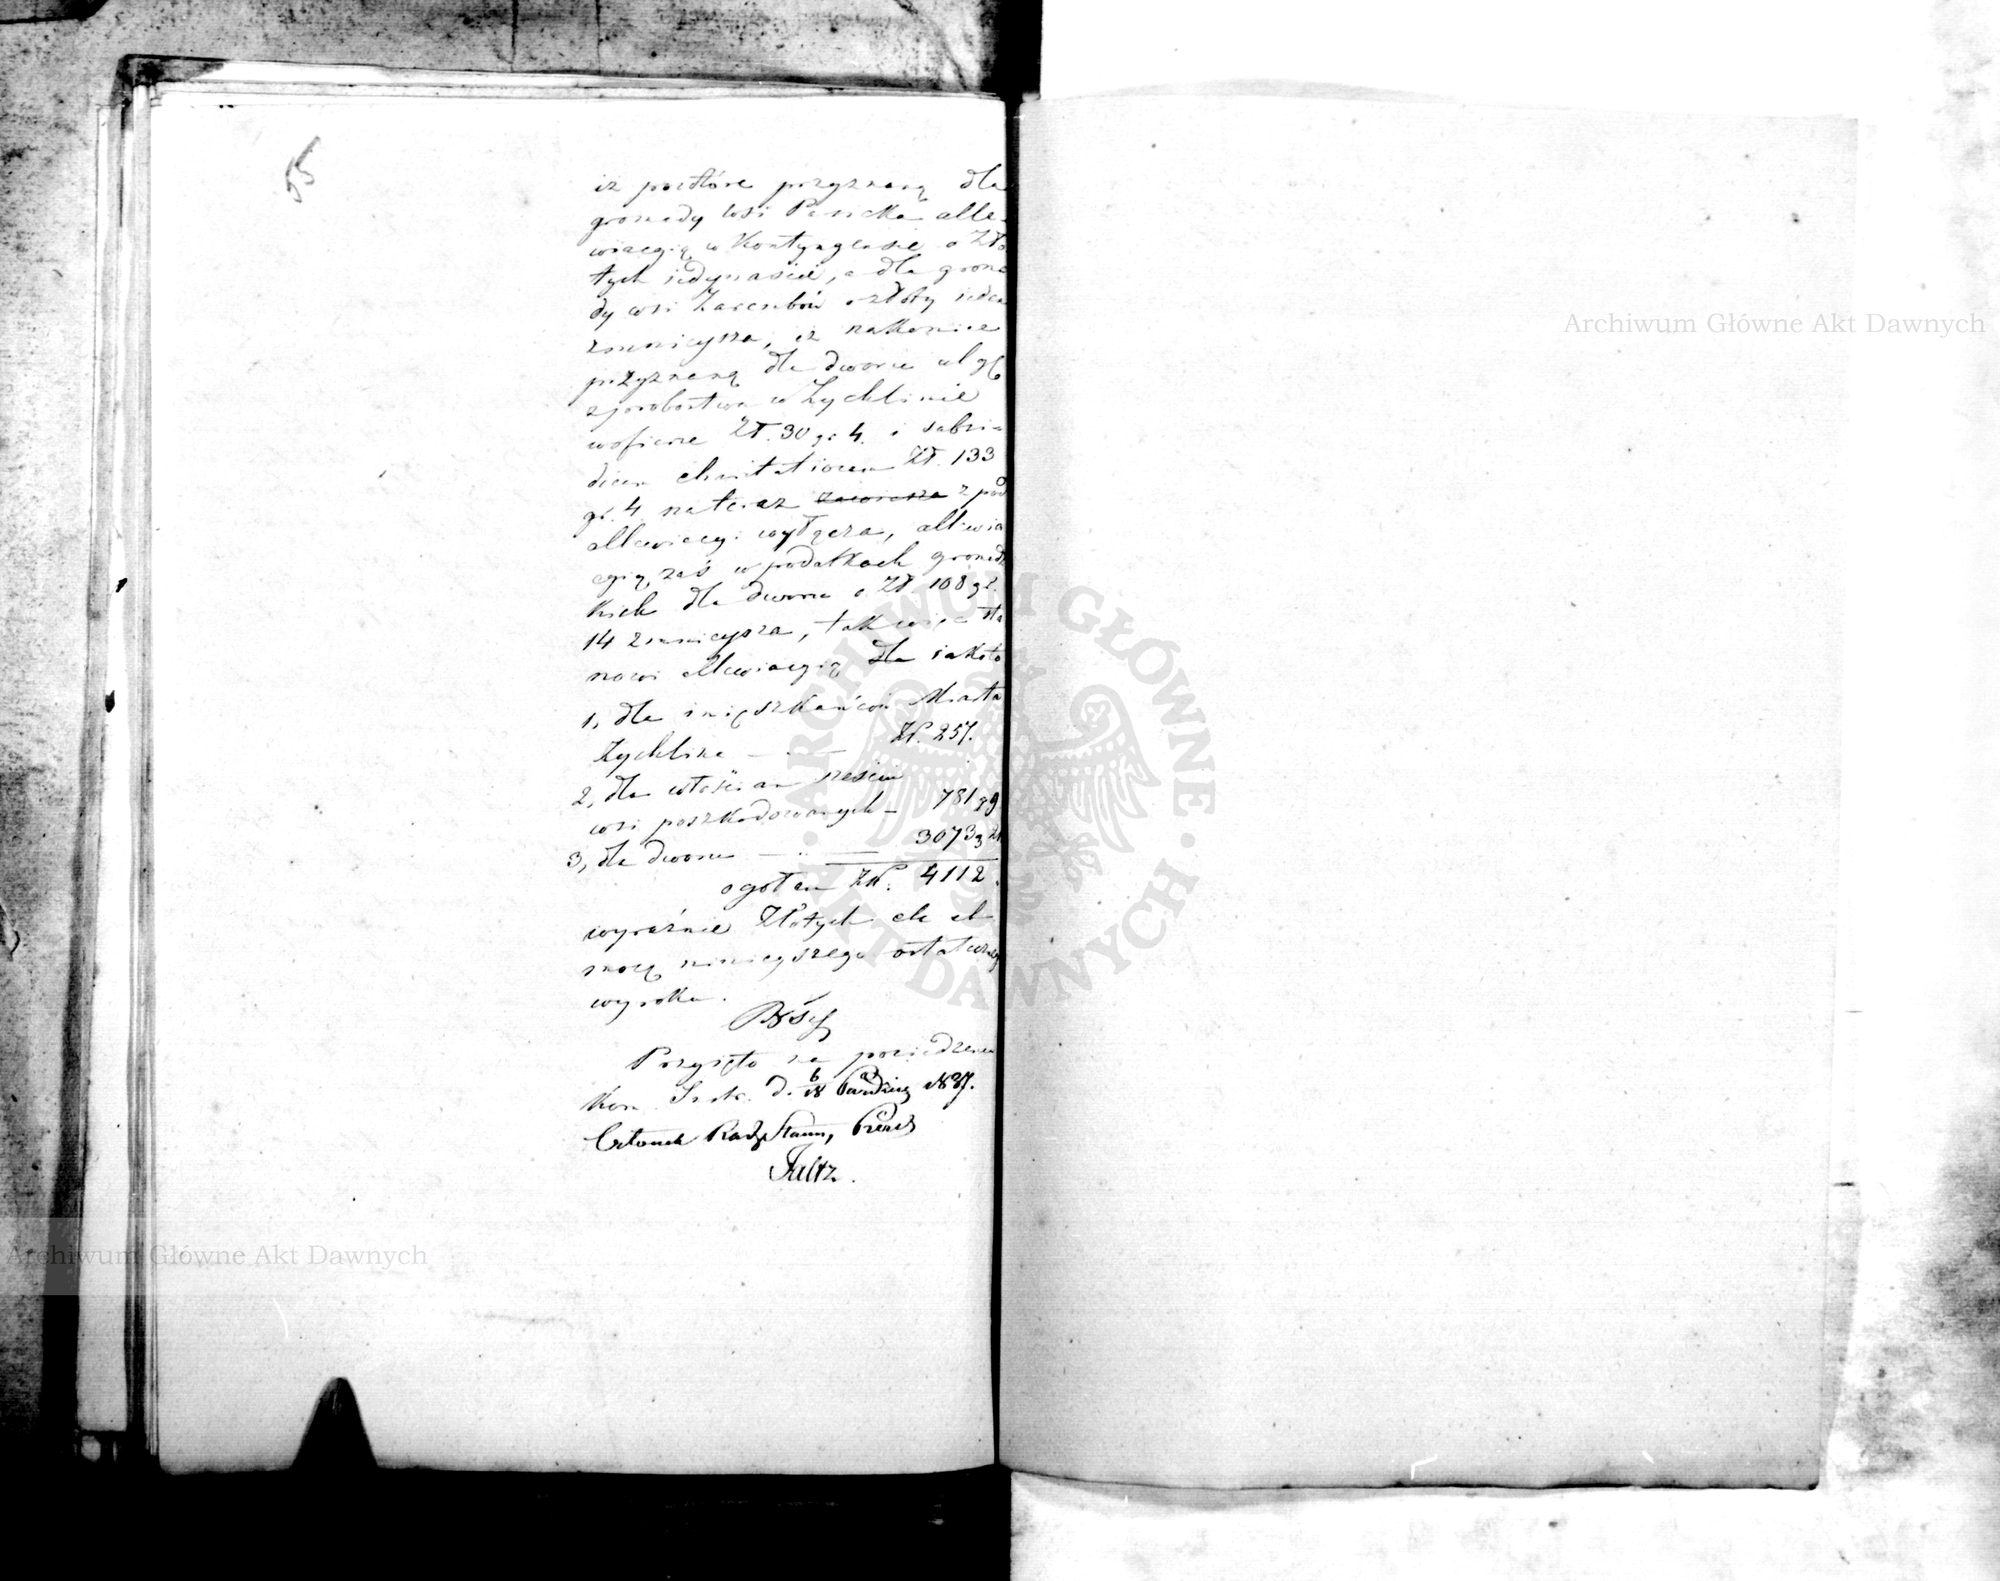 55
iż powtóre przyznaną dla
gromady wsi Pasieka alle-
wiacyią w Kontyngensie o Zło
tych iedynaście, a dla groma
dy wsi Zarembów o złoty ieden
zmnieysza, iż nakoniec
przyznaną dla dworu ulgę
z probostwa w Zychlinie
w ofierze Zł. 30 gr 4. i subsi-
dium charitativum Zł. 133
gr. 4 na teraz z pod
allewiacyi wyłącza, allewia
cyią zaś w podatkach gromadz
kich dla dworu o Zł. 108 gr.
14 zmnieysza, tak więc sta
nowi allewiacyią dla iakoto
1, dla mieszkańców Miasta
Zychlina — Zł. 257.
2, dla włościan sześciu
wsi poszkodowanych — 781 g 9
3, dla dworu — 3073 g 21
ogółem Zł. 4112.
wyraźnie Złotych etc etc
mocą ninieyszego ostateczne
wyroku.
Przyięto na posiedzeniu
Kom. d. 6/18 1837.
Członek Rady Stanu, Prezes
Archiwum Główne Akt Dawnych
Archiwum Główne Akt Dawnych
ARCHIWUM GŁÓWNE · AKT DAWNYCH ·